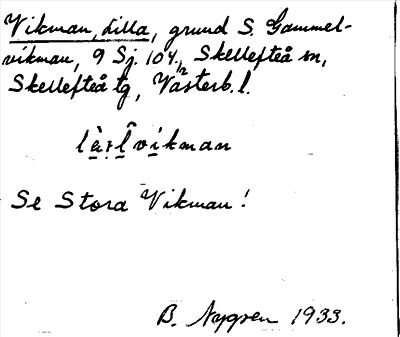 Vikman, Lilla, grund S. Gammel-
vikman, 9 Sj. 104, Skellefteå sn,
Skellefteå tg, Västerb. l.
Se Stora Vikman!
B. Nygren 1933.